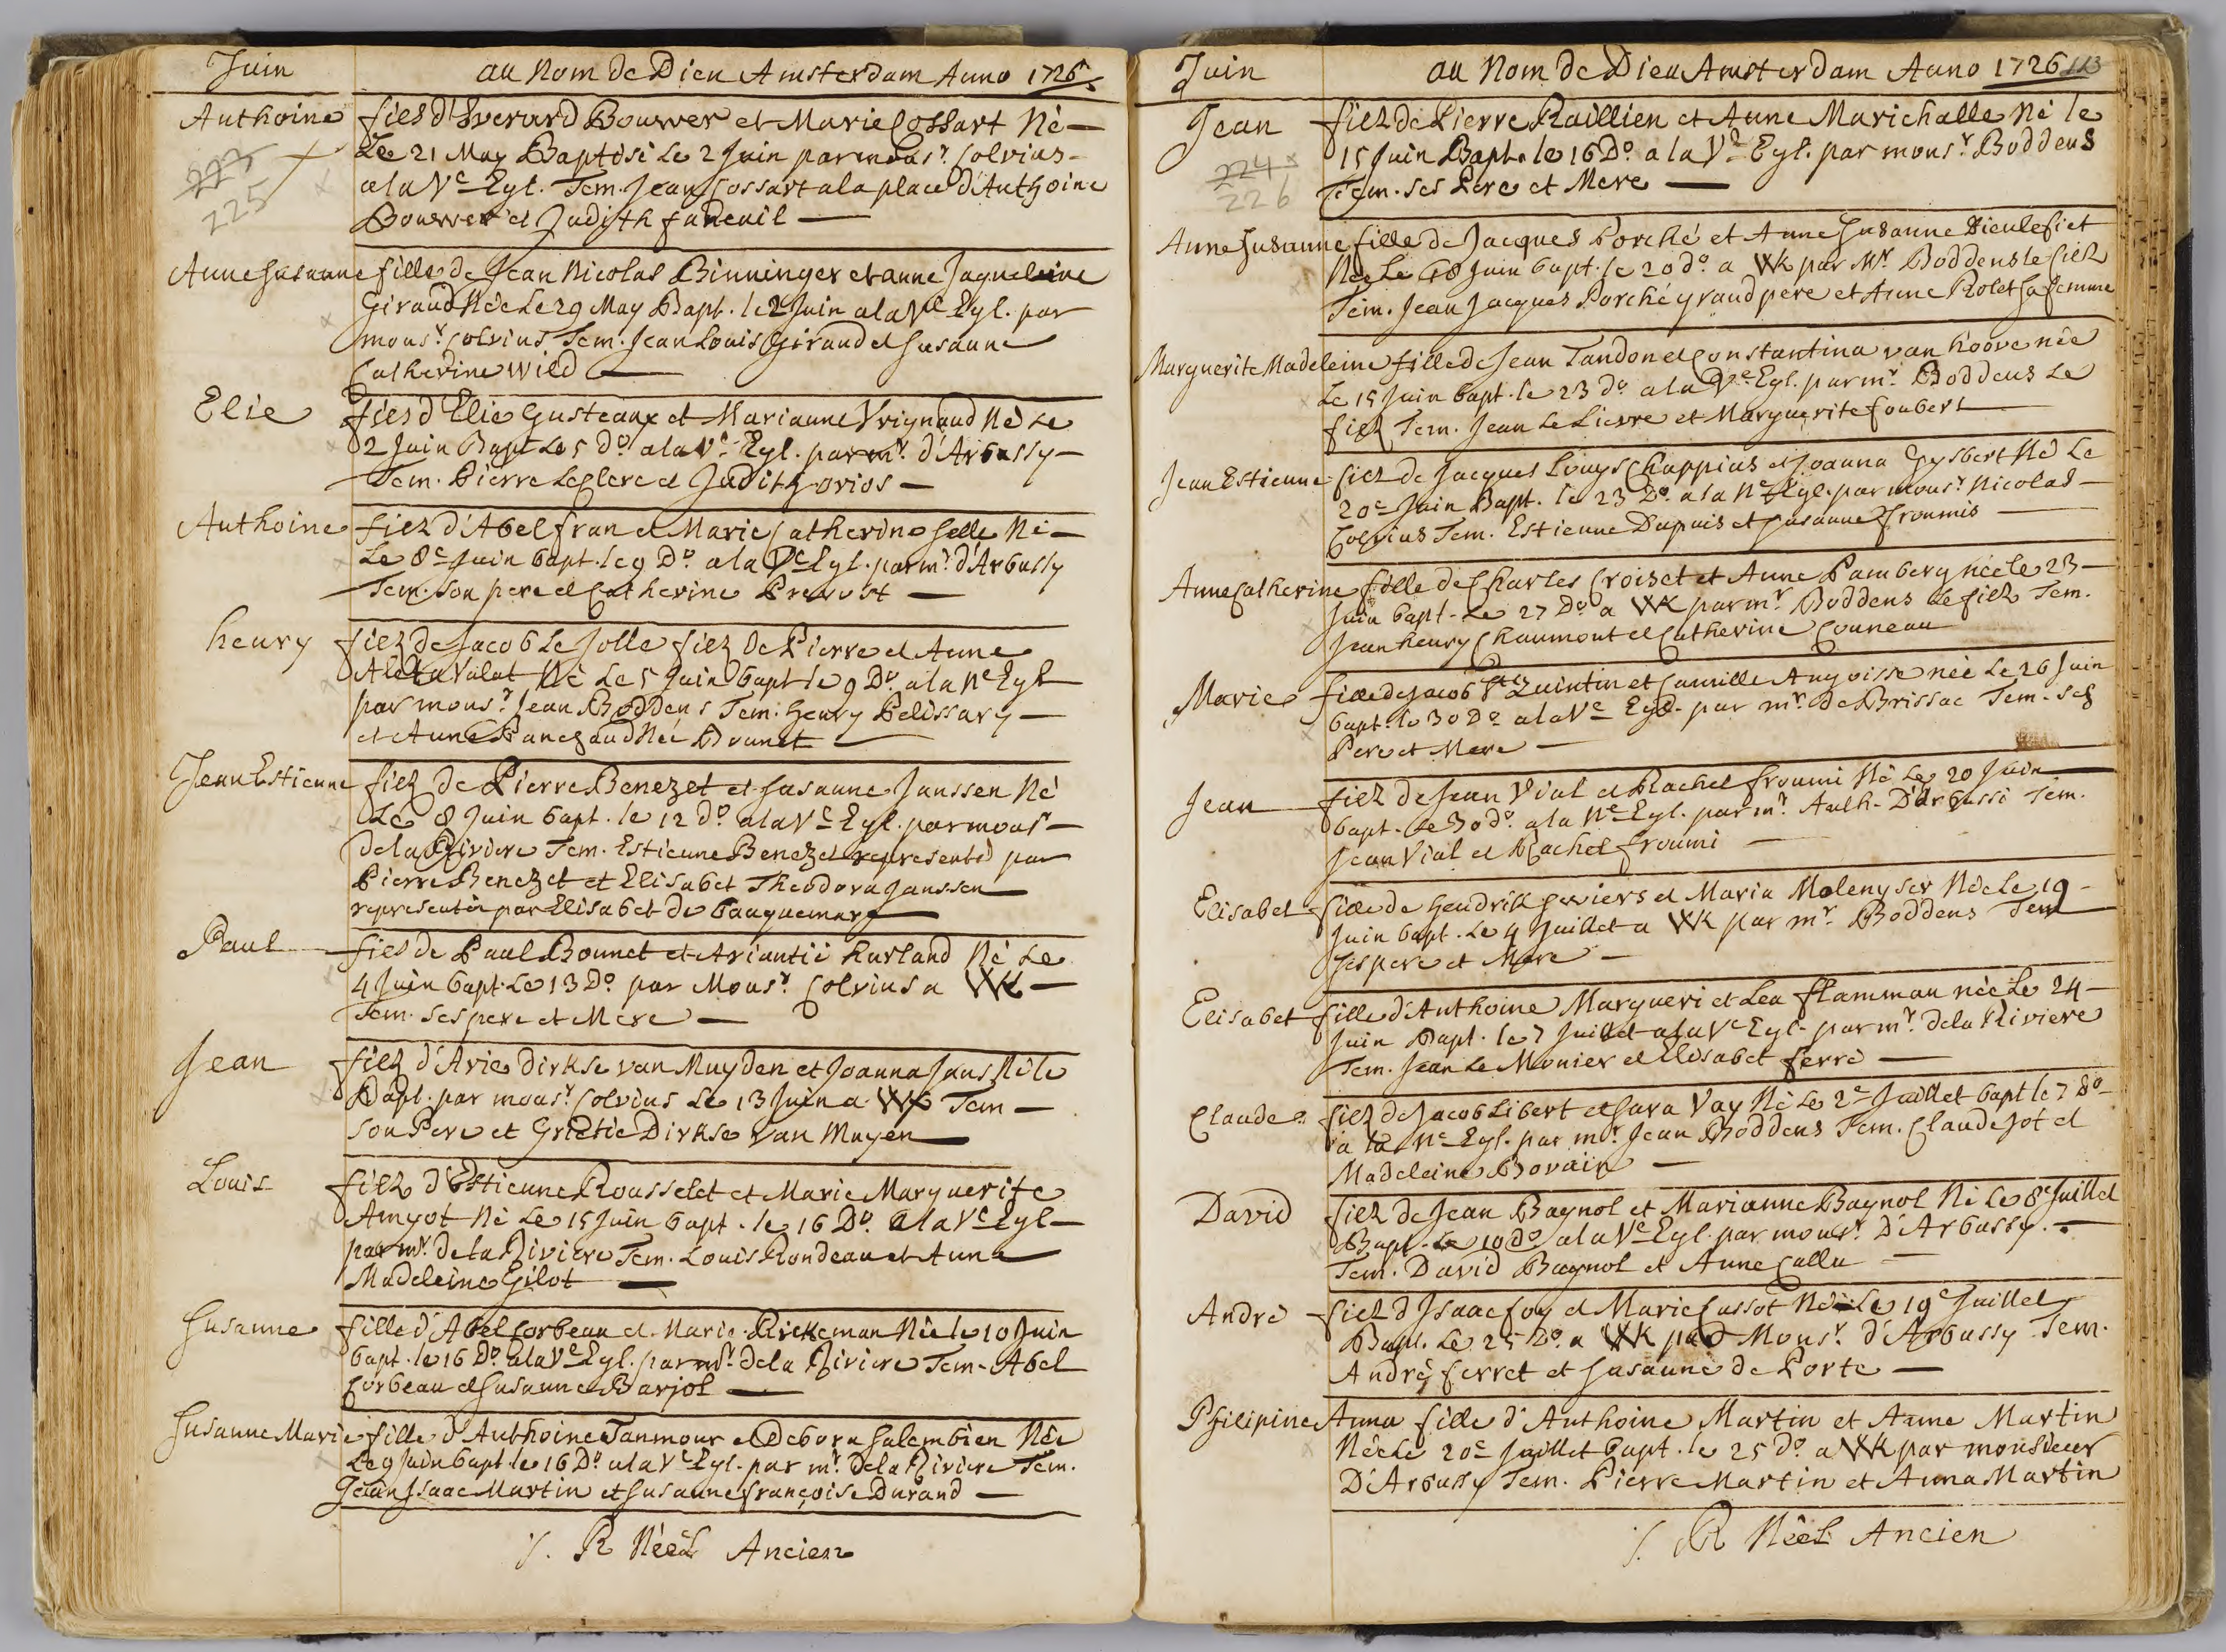 Juin
au Nom de Dieu Amsterdam Anno 1726
Anthoine
fils d'Everard Bouwer et Marie Cossart Né
Le 21 May Baptisé Le 2 Juin par mons.r Colvius
223
225
a la V.e Egl. Tem. Jean Cossart a la place d'Anthoine
Bouwer et Judith faneuil
Anne Susanne fille de Jean Nicolas Binninger et anne Jaqueleine
Giraud Née Le 29 May Bapt. le 2 Juin a la V.e Egl. par
mons.r Colvius Tem. Jean Louis Giraud et Susanne
Catherine Wild
Elie
fils d'Elie Gusteaux et Marianne Vrignaud Né Le
2 Juin Bapt Le 5 D.o a la V.e Egl. par m.r d'Arbussy
Tem. Pierre Leclerc et Judith orios
Anthoine
filz d'Abel fran et Marie Catherine Selle Né
Le 8.e Juin bapt. le 9 D.o a la V.e Egl. par m.r d'Arbussy
Tem. Son pere et Catherine Prevost
henry
filz de Jacob Le Jolle filz de Pierre et Anne
Aletta Valat Né Le 5 Juin bapt le 9 D.o a la N.e Egl
par mons.r Jean Boddens Tem. Henry Pelissary
et Anne Pancgaud Née Brunet
Jean Estienne
filz de Pierre Benezet et Susanne Janssen Né
Le 8 Juin bapt. le 12 d.o a la V.e Egl. par mons.r
de la Riviere Tem. Estienne Benezet representé par
Pierre Benezet et Elisabet Theodora Janssen
representée par Elisabet de bauquemare
Paul
fils de Paul Bonnet et Ariantié harland Né Le
4 Juin bapt. Le 13 D.o par Mons.r Colvius a WK
Tem. Ses pere et Mere
Jean
filz d'Arie Dirkse van Muyden et Joanna Jans Né le
Bapt. par mons.r Colvius Le 13 Juin a WK Tem
Son Pere et Grietie Dirkse van Muyen
Louis
filz d'Estienne Rousselet et Marie Marguerite
Amyot Né Le 15 Juin bapt. le 16 D.o a la V.e Egl
par m.r de la Riviere Tem. Louis Rondeau et Anne
Madeleine Gilot
Susanne
fille d'Abel Corbeau et Marie Pirckeman Née le 10 Juin
bapt. le 16 D.o a la V.e Egl. par m.r de la Riviere Tem. Abel
Corbeau et Susanne Barjol
Susanne Marie fille d'Anthoine Tanmour et Debora Salembien Née
Le 9 Juin bapt. le 16 D.o a la V.e Egl. par m.r de la Riviere Tem.
Jean Isaac Martin et Susanne françoise Durand
/. R Néel Ancien
Juin
au Nom de Dieu Amsterdam Anno 1726 113
Jean
filz de Pierre Raillien et Anne Marichalle Né le
15 Juin Bapt. le 16 D.o a la V.e Egl. par mons.r Boddens
224
226
Tem. Ses Pere et Mere
Anne Susanne fille de Jacques Porché et Anne Susanne Dieulefiet
Née Le 18 Juin bapt. le 20 d.o a WK par M.r Boddens le filz
Tem. Jean Jacques Porché grand pere et Anne Rolet Sa femme
Marguerite Madeleine fille de Jean Tandon et Constantina van hoove née
Le 15 Juin bapt. le 23 d.o a la V.e Egl. par m.r Boddens Le
filz Tem. Jean Le Lievre et Marguerite foubert
Jean Estienne
filz de Jacques Louys Chappius et Joanna Gysbert Né Le
20.e Juin Bapt. le 23 D.o a la N.e Egl. par mons.r Nicolas
Colvius Tem. Estienne Dupuis et Susanne froumis
Anne Catherine fille de Charles Croiset et Anne Pamberg née le 23
Juin bapt. Le 27 D.o a WK par m.r Boddens Le filz Tem.
Jean henry Chaumont et Catherine Couneau
Marie
fille de Jacob Quintin et Camille Angoisse née Le 26 Juin
bapt. le 30 D.o a la V.e Egl. par m.r de Brissac Tem. Ses
Pere et Mere
Jean
filz de Jean Vial et Rachel froumi Né Le 20 Juin
bapt. Le 30 d.o a la N.e Egl. par m.r Anth. D'Arbussi Tem.
Jean Vial et Rachel froumi
Elisabet
fille de Hendrik Sweiers et Maria Molenyser Née Le 19
Juin bapt. Le 4 Juillet a WK par m.r Boddens Tem
ses pere et Mere
Elisabet
fille d'Anthoine Margueri et Lea flamman née Le 24
Juin Bapt. le 7 Juillet a la V.e Egl. par m.r de la Riviere
Tem. Jean Le Monier et Elisabet ferré
Claude
filz de Jacob Libert et Sara Vay Né Le 2.e Juillet bapt le 7 do
a la N.e Egl. par m.r Jean Boddens Tem. Claude Jot et
Madeleine Bovain
David
filz de Jean Bagnol et Marianne Bagnol Né Le 8.e Juillet
Bapt. Le 10 do a la V.e Egl. par mons.r D'Arbussy.
Tem. David Bagnol et Anne Calla
André
filz d'Isaac foy et Marie Cussot Né Le 19.e Juillet
Bapt. Le 25 D.o a WK par Mons.r d'Arbussy Tem.
André ferret et Susanne de Porte
Philipine Anna fille d'Anthoine Martin et Anne Martin
Née Le 20.e Juillet bapt. le 25 d.o a WK par monsieur
D'Arbussy Tem. Pierre Martin et Anna Martin
/. R Néel Ancien